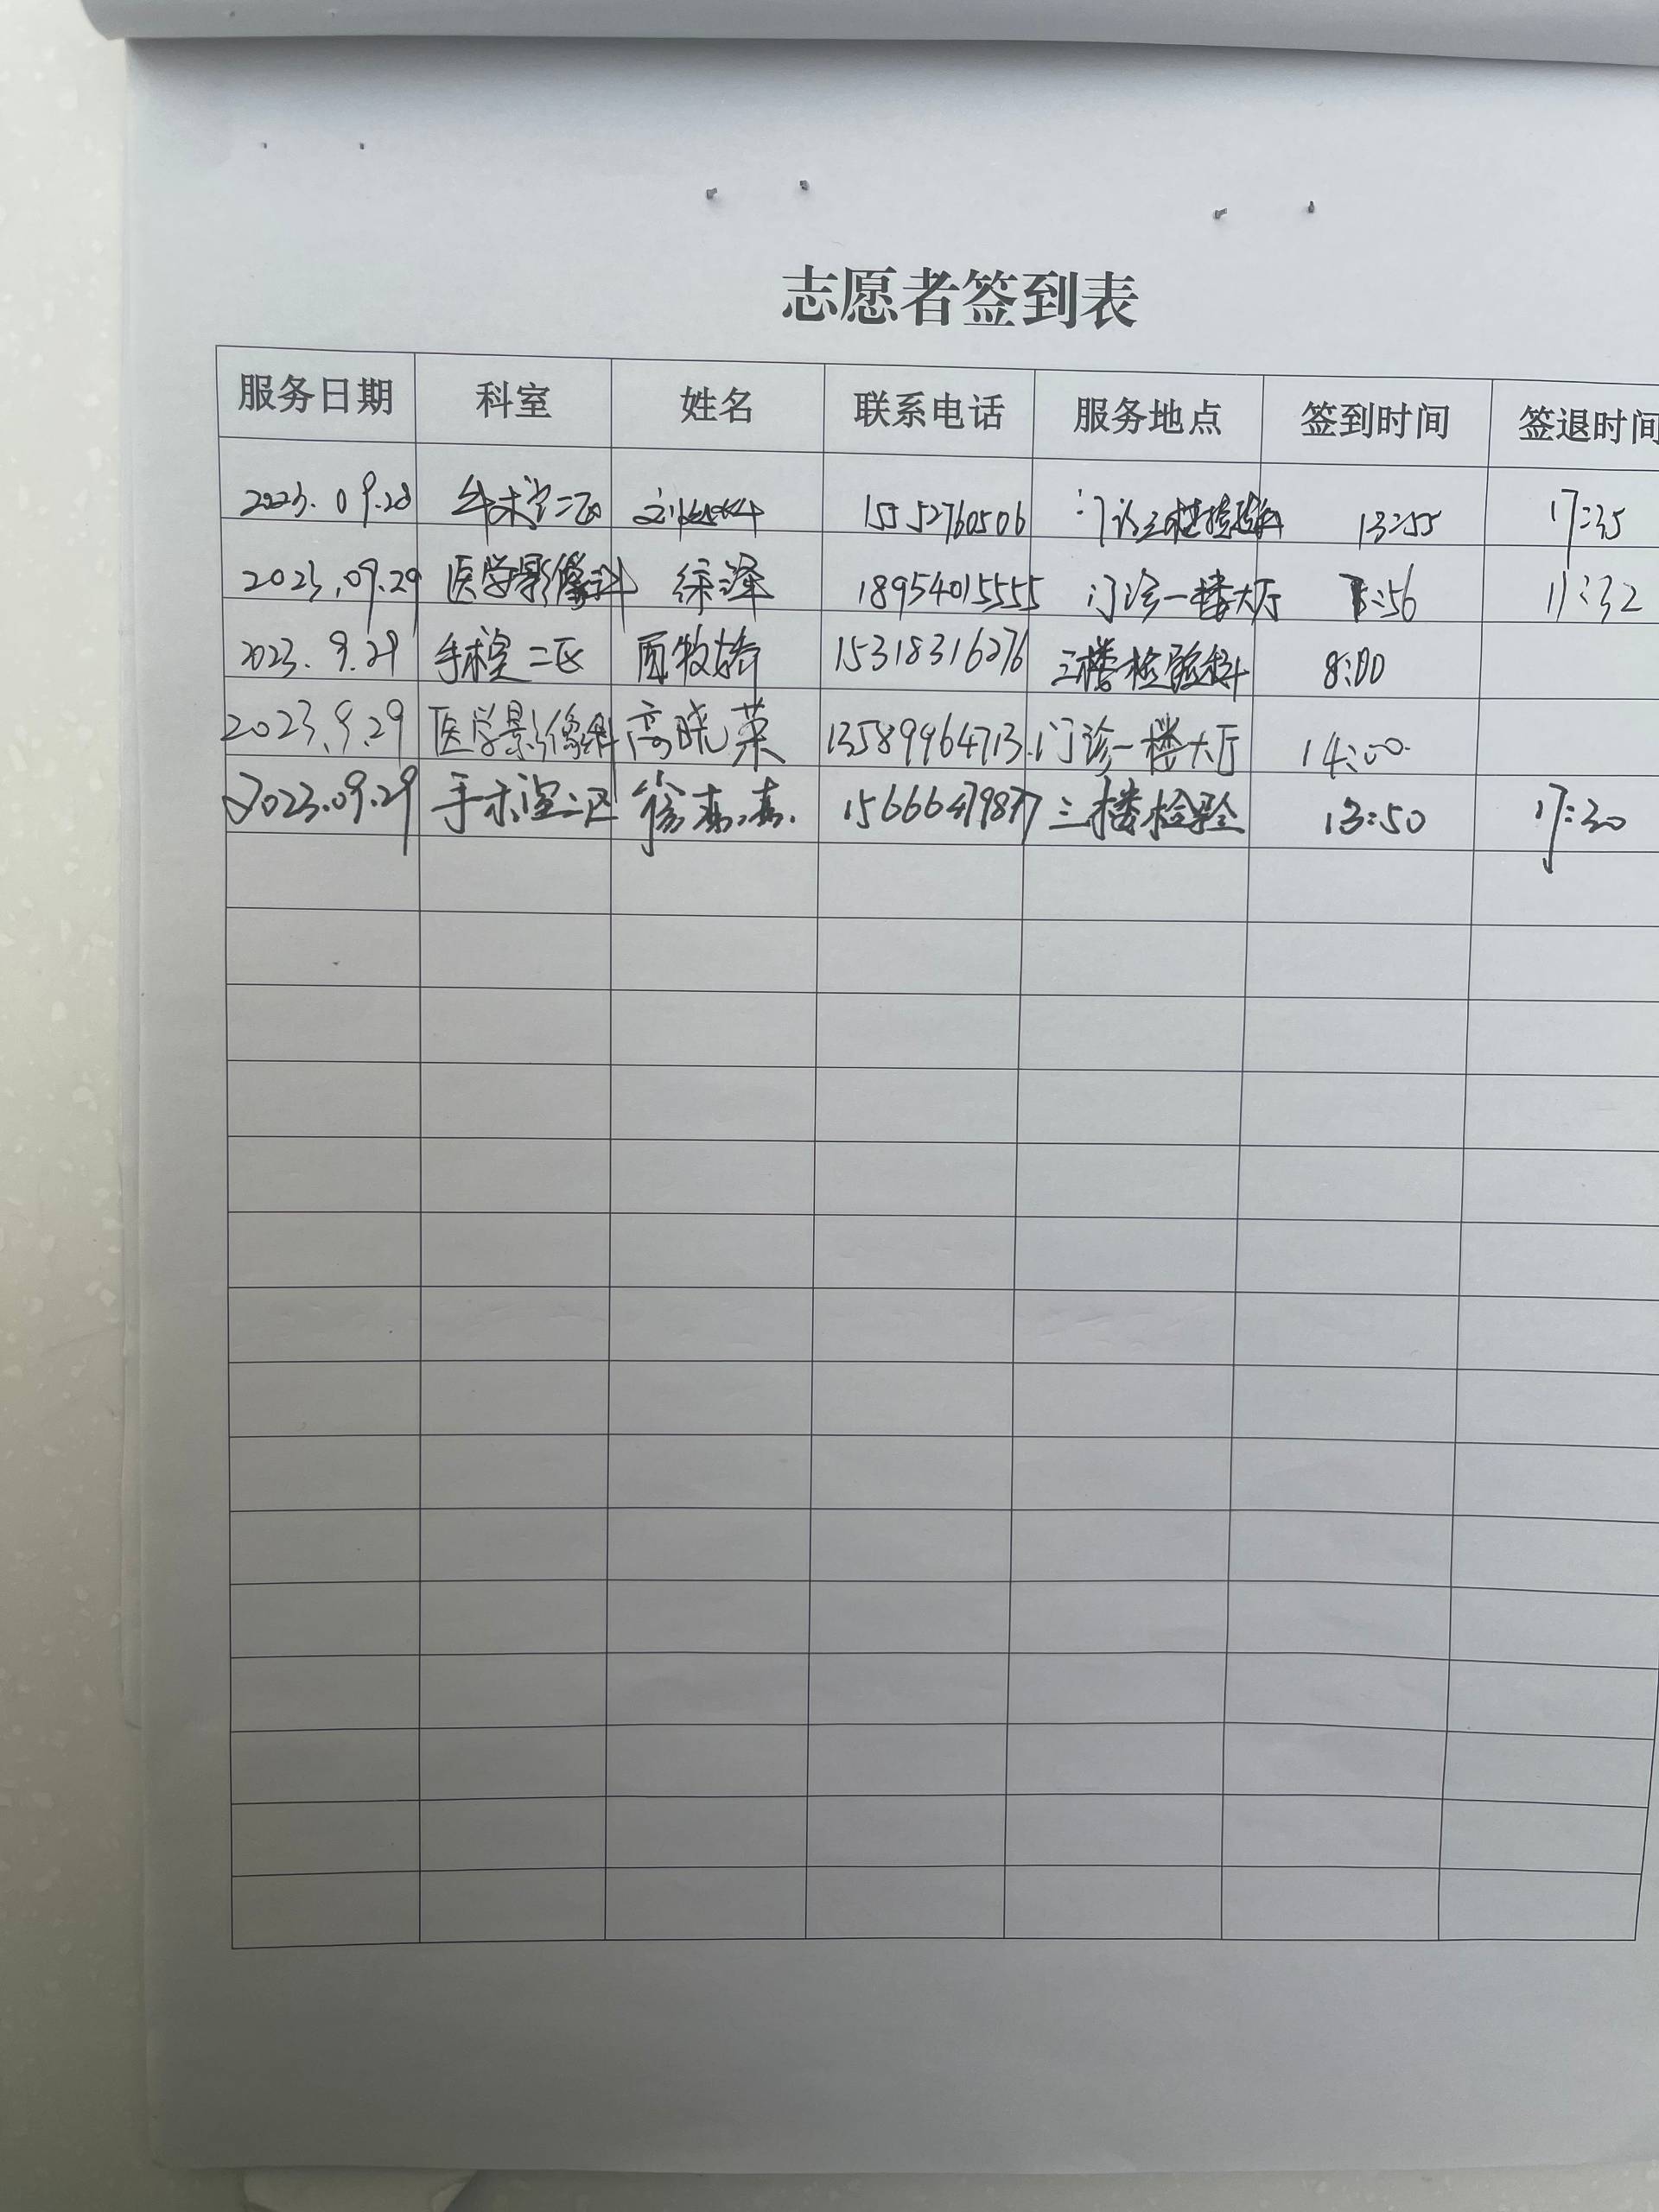 志愿者签到表
服务日期 科室 姓名 联系电话 服务地点 签到时间 签退时间
2023.09.28 手术室二区 15552760506 门诊三楼检验科 13:55 17:35
2023.09.29 医学影像科 徐泽 18954015555 门诊一楼大厅 :56 11:32
2023.9.29 手术室二区 15318316276 三楼检验科 8:00
2023.9.29 医学影像科 高晓荣 13589964713 门诊一楼大厅 14:00
2023.09.29 手术室二区 徐 三楼检验 13:50 17:30